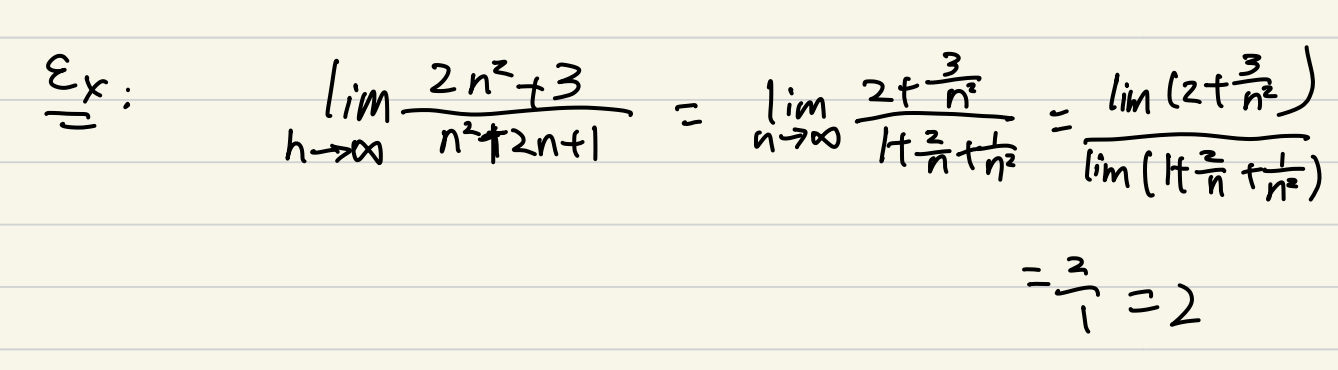 Ex: lim_{n→∞} (2n²+3)/(n²+2n+1) = lim_{n→∞} (2+3/n²)/(1+2/n+1/n²) = lim(2+3/n²)/lim(1+2/n+1/n²)
= 2/1 = 2